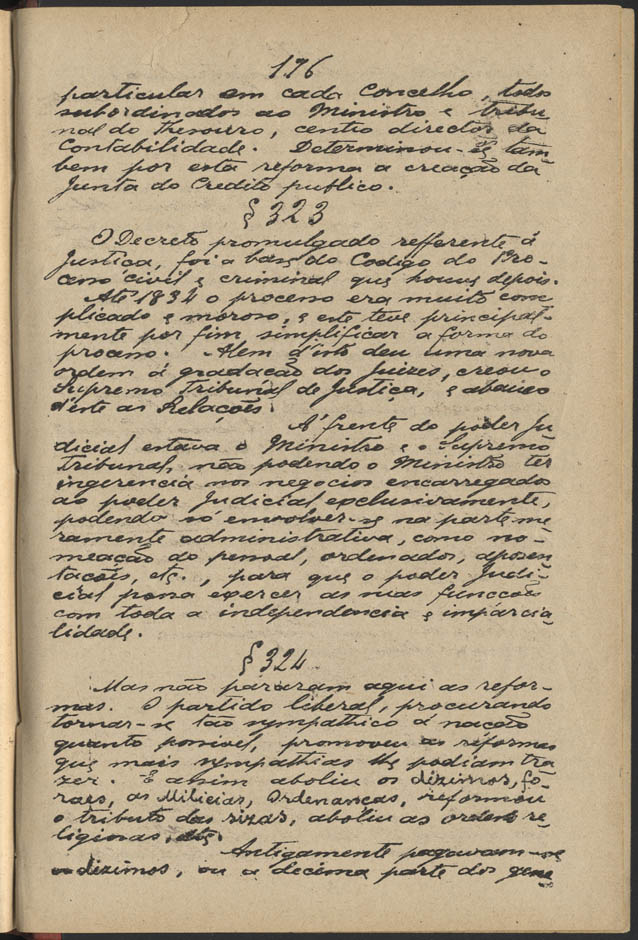 176
particular em cada Concelho, todos
subordinados ao Ministro e tribu
nal do Thesouro, centro director da
Contabilidade. Determinou-se tam
bem por esta reforma a creação da
Junta do Credito publico.
§ 323
O Decreto promulgado refferente á
Justiça, foi a base do Codigo do Pro-
cesso civil e criminal que houve depois.
Até 1834 o processo era muito com
plicado e moroso, e este teve principal-
mente por fim simplificar a forma do
processo. Alem d'isto deu uma nova
ordem á gradação dos Juizes, creou o
Supremo Tribunal de Justiça, e abaixo
d'este as Relações.
Á frente do poder Ju
dicial estava o Ministro e o Supremo
Tribunal, não podendo o Ministro ter
ingerencia nos negocios encarregados
ao poder Judicial exclusivamente,
podendo só envolver-se na parte me
ramente administrativa, como no-
meação do pessoal, ordenados, aposen
tações, etc., para que o poder Judi-
cial possa exercer as suas funcções
com toda a independencia e imparcia
lidade.
§ 324
Mas não pararam aqui as refor-
mas. O partido liberal, procurando
tornar-se tão sympathico á nação
quanto possivel, promoveu as reformas
que mais sympathias lhe podiam tra
zer. E assim aboliu os dizimos, fo-
raes, as Milicias, Ordenanças, reformou
o tributo das sizas, aboliu as ordens re-
ligiosas, etc.
Antigamente pagavam-se
os dizimos, ou a decima parte dos gene